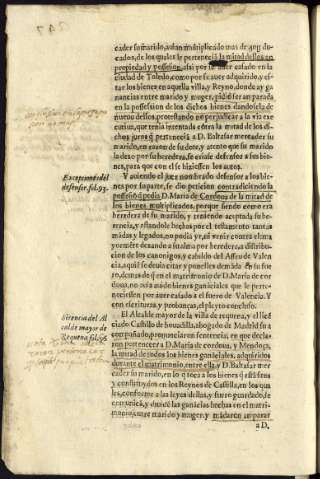 cader su marido, auian multiplicado mas de
cados, de los quales le pertenecia la mitad dellos en
propiedad y possesion, assi por se auer casado en la
ciudad de Toledo, como por se auer adquirido, y es-
tar los bienes en aquella villa, y Reyno, donde ay ga-
nancias entre marido y muger, pidio ser amparada
en la possession de los dichos bienes dandosela de
nueuo dellos, protestando no perjudicar a la via exe-
cutiua, que tenia intentada contra la mitad de los di-
chos juros q pertenecia a D. Baltasar mercader su
marido, en razon de su dote, y atento que su marido
la dexo por su heredera, se criasse defensor a sus bie-
nes, para que con el se hiziessen los autos.
Excepciones del
defensor, fol. 93.
Y auiendo el juez nombrado defensor a los bie-
nes por su parte, se dio peticion contradiciendo la
possesion q pedia D. Maria de Cordoua de la mitad de
los bienes multiplicados, porque siendo como era
heredera de su marido, y teniendo aceptada su he-
rencia, y estandole hechos por el testamento tantas
mãdas y legados, no podia yr, ni venir contra el, ma-
yormẽte dexando a su alma por heredera, a distribu-
cion de los canonigos, y cabildo del Asseu de Valen-
cia, aqui se deuia citar y ponelles demãda
ro, demas de q en el matrimonio de D. Maria de cor-
doua, no auia auido bienes gananciales que le perte-
neciessen por auer casado a el fuero de Valencia. Y
con escrituras y probanças, el pleyto concluso.
Sentencia del Al
calde mayor de
Requena fol. 98
El Alcalde mayor de la villa de requena, y el licẽ
ciado Castillo de bouadilla, abogado de Madrid su a
compañado, pronunciaron sentencia, en que decla-
ran pertenecer a D. Maria de cordoua, y Mendoça,
la mitad de todos los bienes gananciales, adquiridos
durante el matrimonio, entre ella, y D. Baltasar mer-
cader su marido, en lo q toca a los bienes q estã sitos
y constituydos en los Reynos de Castilla, en los qua
les, conforme a las leyes dellos, y fuero guardado, se
comunicã, y diuidẽ las ganãcias hechas en el matri-
monio, entre marido y muger, y mãdaron amparar
a D.